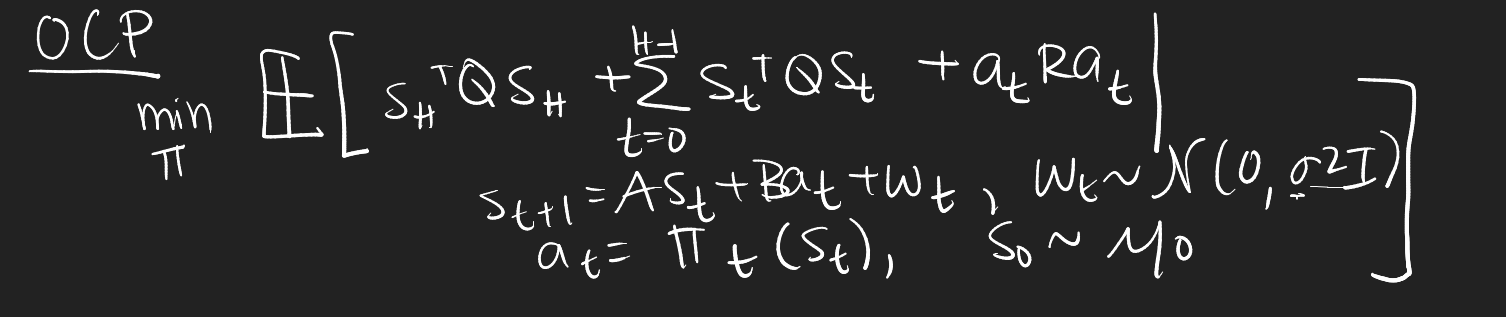 OCP
min_π 𝔼[ S_H^T Q S_H + Σ_{t=0}^{H-1} S_t^T Q S_t + a_t R a_t |
S_{t+1} = A S_t + B a_t + W_t , W_t ~ N(0, σ2I)
a_t = π_t (S_t), S_0 ~ μ_0 ]